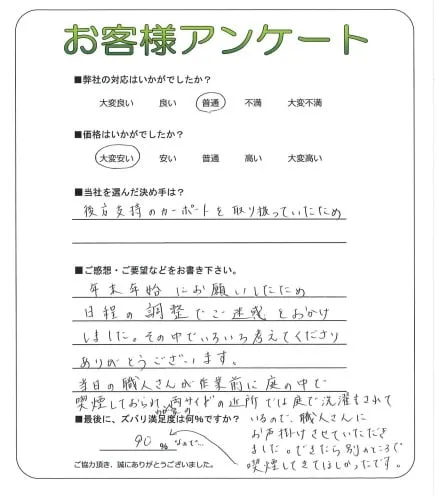 お客様アンケート
■弊社の対応はいかがでしたか？
大変良い 良い 普通 不満 大変不満
■価格はいかがでしたか？
大変安い 安い 普通 高い 大変高い
■当社を選んだ決め手は？
後方支持のカーポートを取り扱っていたため
■ご感想・ご要望などをお書き下さい。
年末年始にお願いしたため
日程の調整でご迷惑をおかけ
しました。その中でいろいろ考えてくださり
ありがとうございます。
当日の職人さんが作業前に庭の中で
喫煙しておられ、両サイドの近所では庭で洗濯をされて
■最後に、ズバリ満足度は何%ですか？
いるので、職人さんに
お声掛けさせていただき
90 % なので…
ました。できたら別のところで
喫煙してきてほしかったです。
ご協力頂き、誠にありがとうございました。